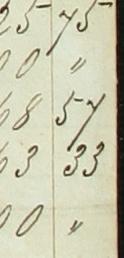 25 75
00 "
68 57
63 33
00 "